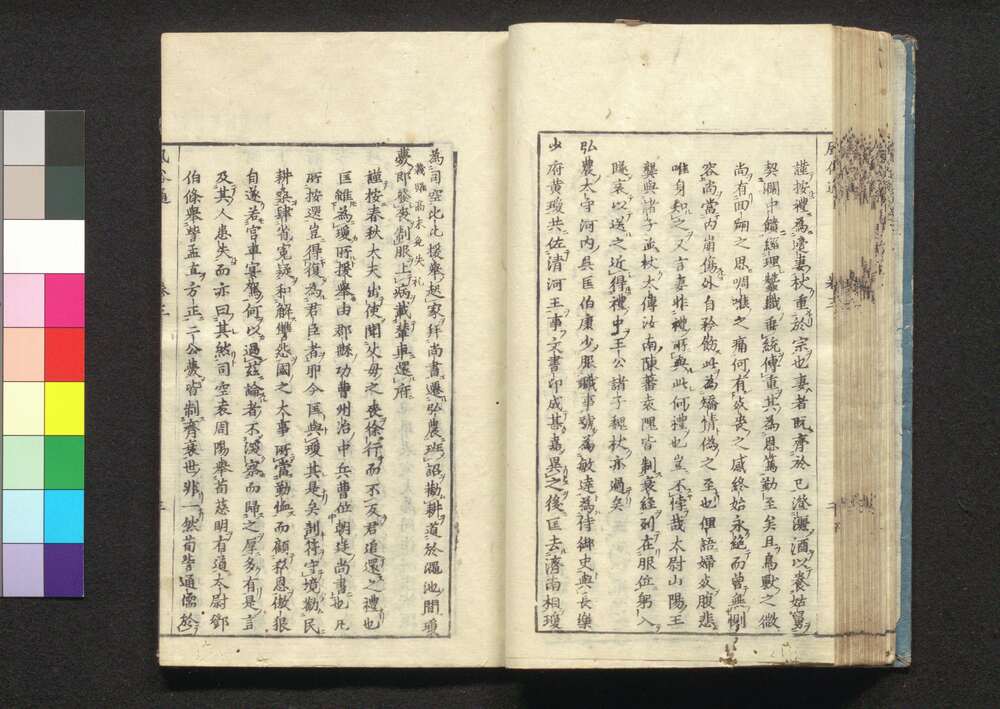 謹按禮為適妻杖重於宗也妻者既齊於己澄灑酒以養姑舅
契濶中饋經理蠶織垂統傳重其為恩篤勤至矣且鳥獸之微
尚有回翔之思啁噍之痛何有死喪之感終始永絶而曾無惻
容尚當內崩傷外自矜飭此為矯情偽之至也俚語婦死腹悲
唯身知之又言妻非禮所與此何禮也豈不悖哉太尉山陽王
龔與諸子並杖太傅汝南陳蕃袁隗皆制衰絰列在服位躬入
隧哀以送之近得禮中王公諸子魏杖亦過矣
弘農太守河內吳匡伯康少服職事號為敏達為侍御史與長樂
少府黃瓊共佐清河王事文書印成甚嘉異之後匡去濟南相瓊
為司空比比援舉起家拜尚書遷弘農班詔勸耕道於澠池聞瓊
薨即發喪制服上病載輦車還府
義雖高未免失礼
謹按春秋大夫出使聞父母之喪徐行而不反君追還之禮也
匡雖為瓊所援舉由郡縣功曹州治中兵曹位朝廷尚書也凡
所按選豈得復為君臣者耶今匡與瓊其是矣剖符守境勸民
耕桑肆省寃疑和解讐怨國之大事所當勤恤而顧私恩傲狠
自遂若宮車宴駕何以過茲論者不深察而歸之厚多有是言
及其人患失而亦曰其然司空袁周陽舉荀慈明有道太尉鄧
伯條舉訾孟直方正二公薨皆制齊衰世非一然荀訾通儒於
卷三